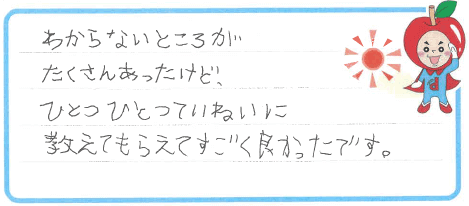 わからないところが
たくさんあったけど、
ひとつひとつていねいに
教えてもらえてすごく良かったです。